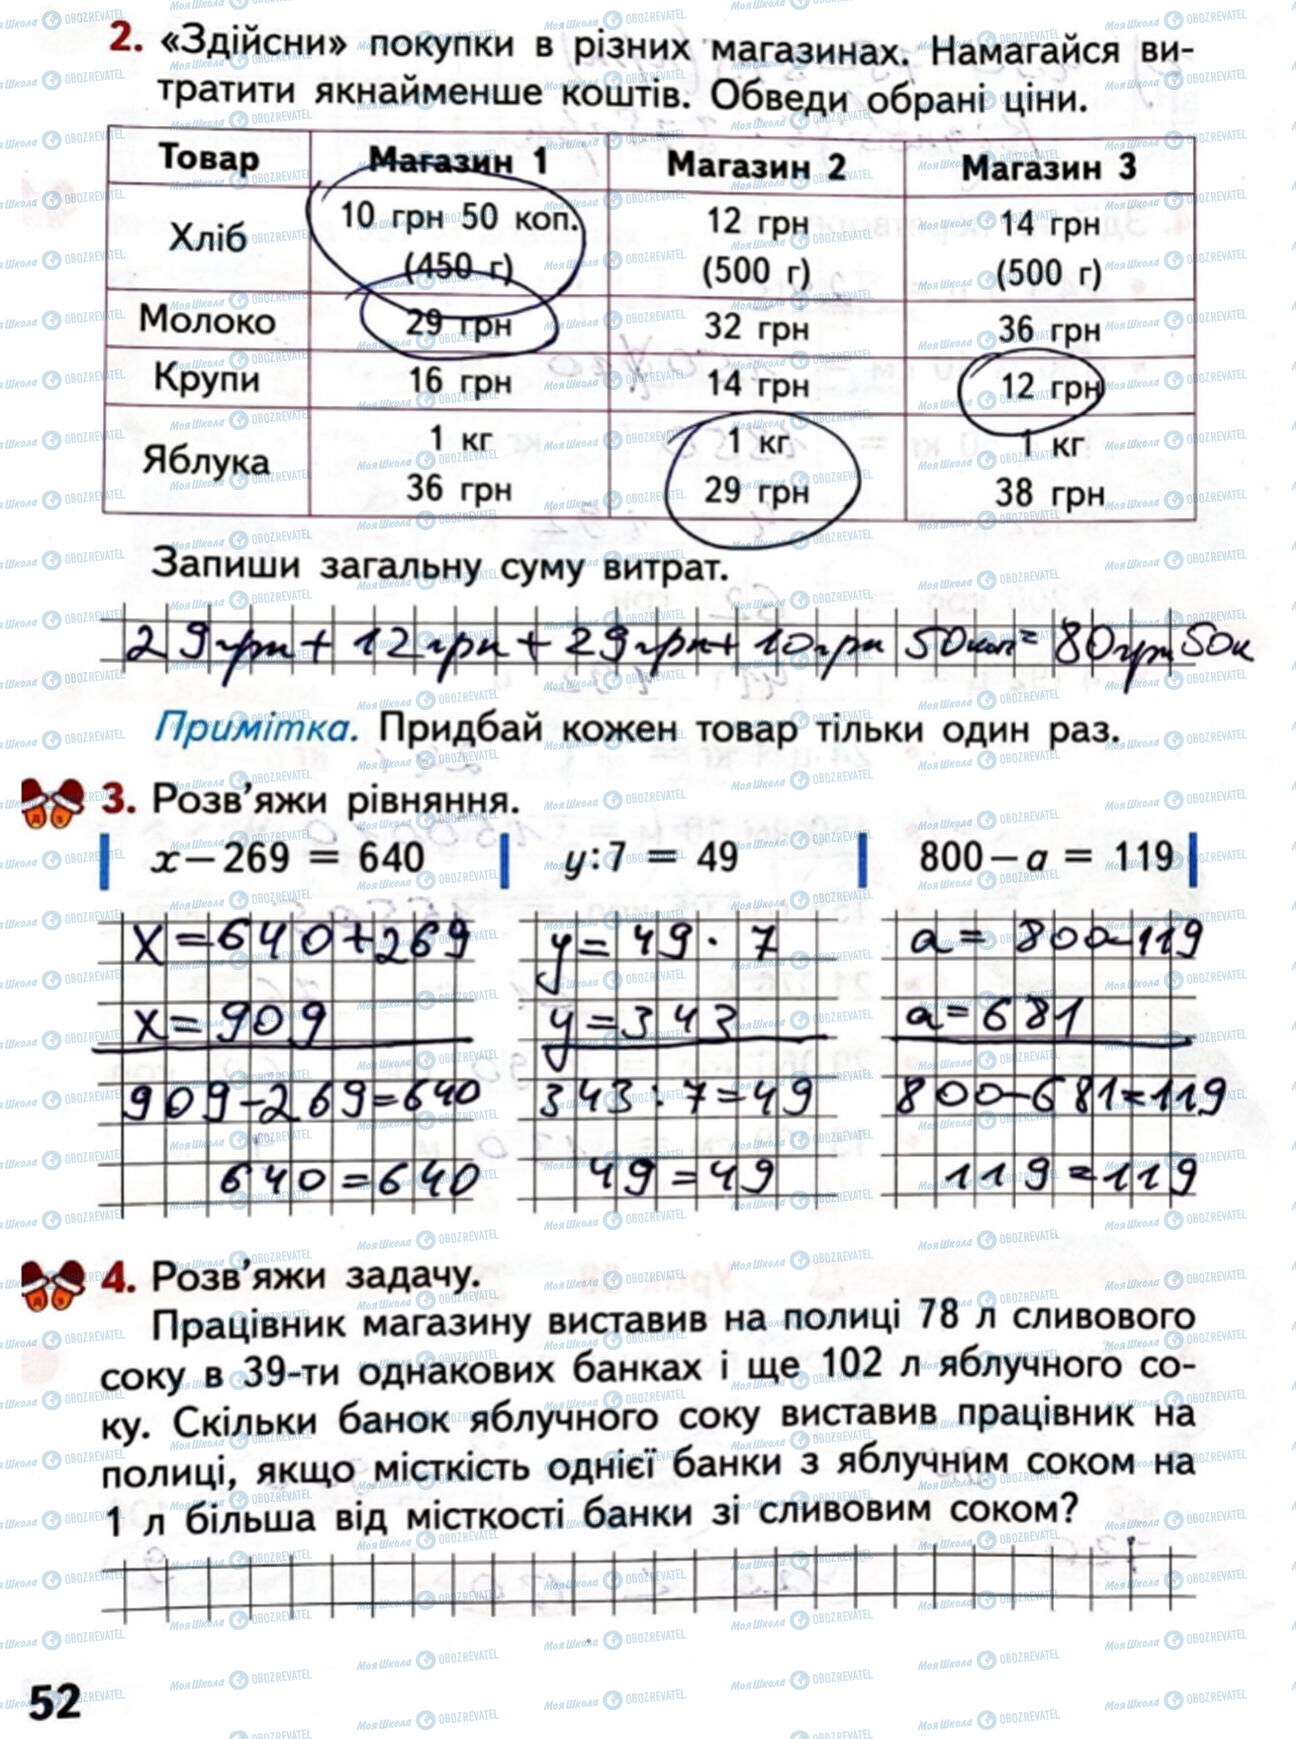 2. «Здійсни» покупки в різних магазинах. Намагайся ви-
тратити якнайменше коштів. Обведи обрані ціни.
Товар Магазин 1 Магазин 2 Магазин 3
Хліб 10 грн 50 коп. (450 г) 12 грн (500 г) 14 грн (500 г)
Молоко 29 грн 32 грн 36 грн
Крупи 16 грн 14 грн 12 грн
Яблука 1 кг 36 грн 1 кг 29 грн 1 кг 38 грн
Запиши загальну суму витрат.
29грн + 12грн + 29грн + 10грн 50коп = 80грн 50к
Примітка. Придбай кожен товар тільки один раз.
3. Розв’яжи рівняння.
x – 269 = 640 y : 7 = 49 800 – a = 119
x = 640 + 269 y = 49 · 7 a = 800 – 119
x = 909 y = 343 a = 681
909 – 269 = 640 343 : 7 = 49 800 – 681 = 119
640 = 640 49 = 49 119 = 119
4. Розв’яжи задачу.
Працівник магазину виставив на полиці 78 л сливового
соку в 39-ти однакових банках і ще 102 л яблучного со-
ку. Скільки банок яблучного соку виставив працівник на
полиці, якщо місткість однієї банки з яблучним соком на
1 л більша від місткості банки зі сливовим соком?
52
МояШкола OBOZREVATEL